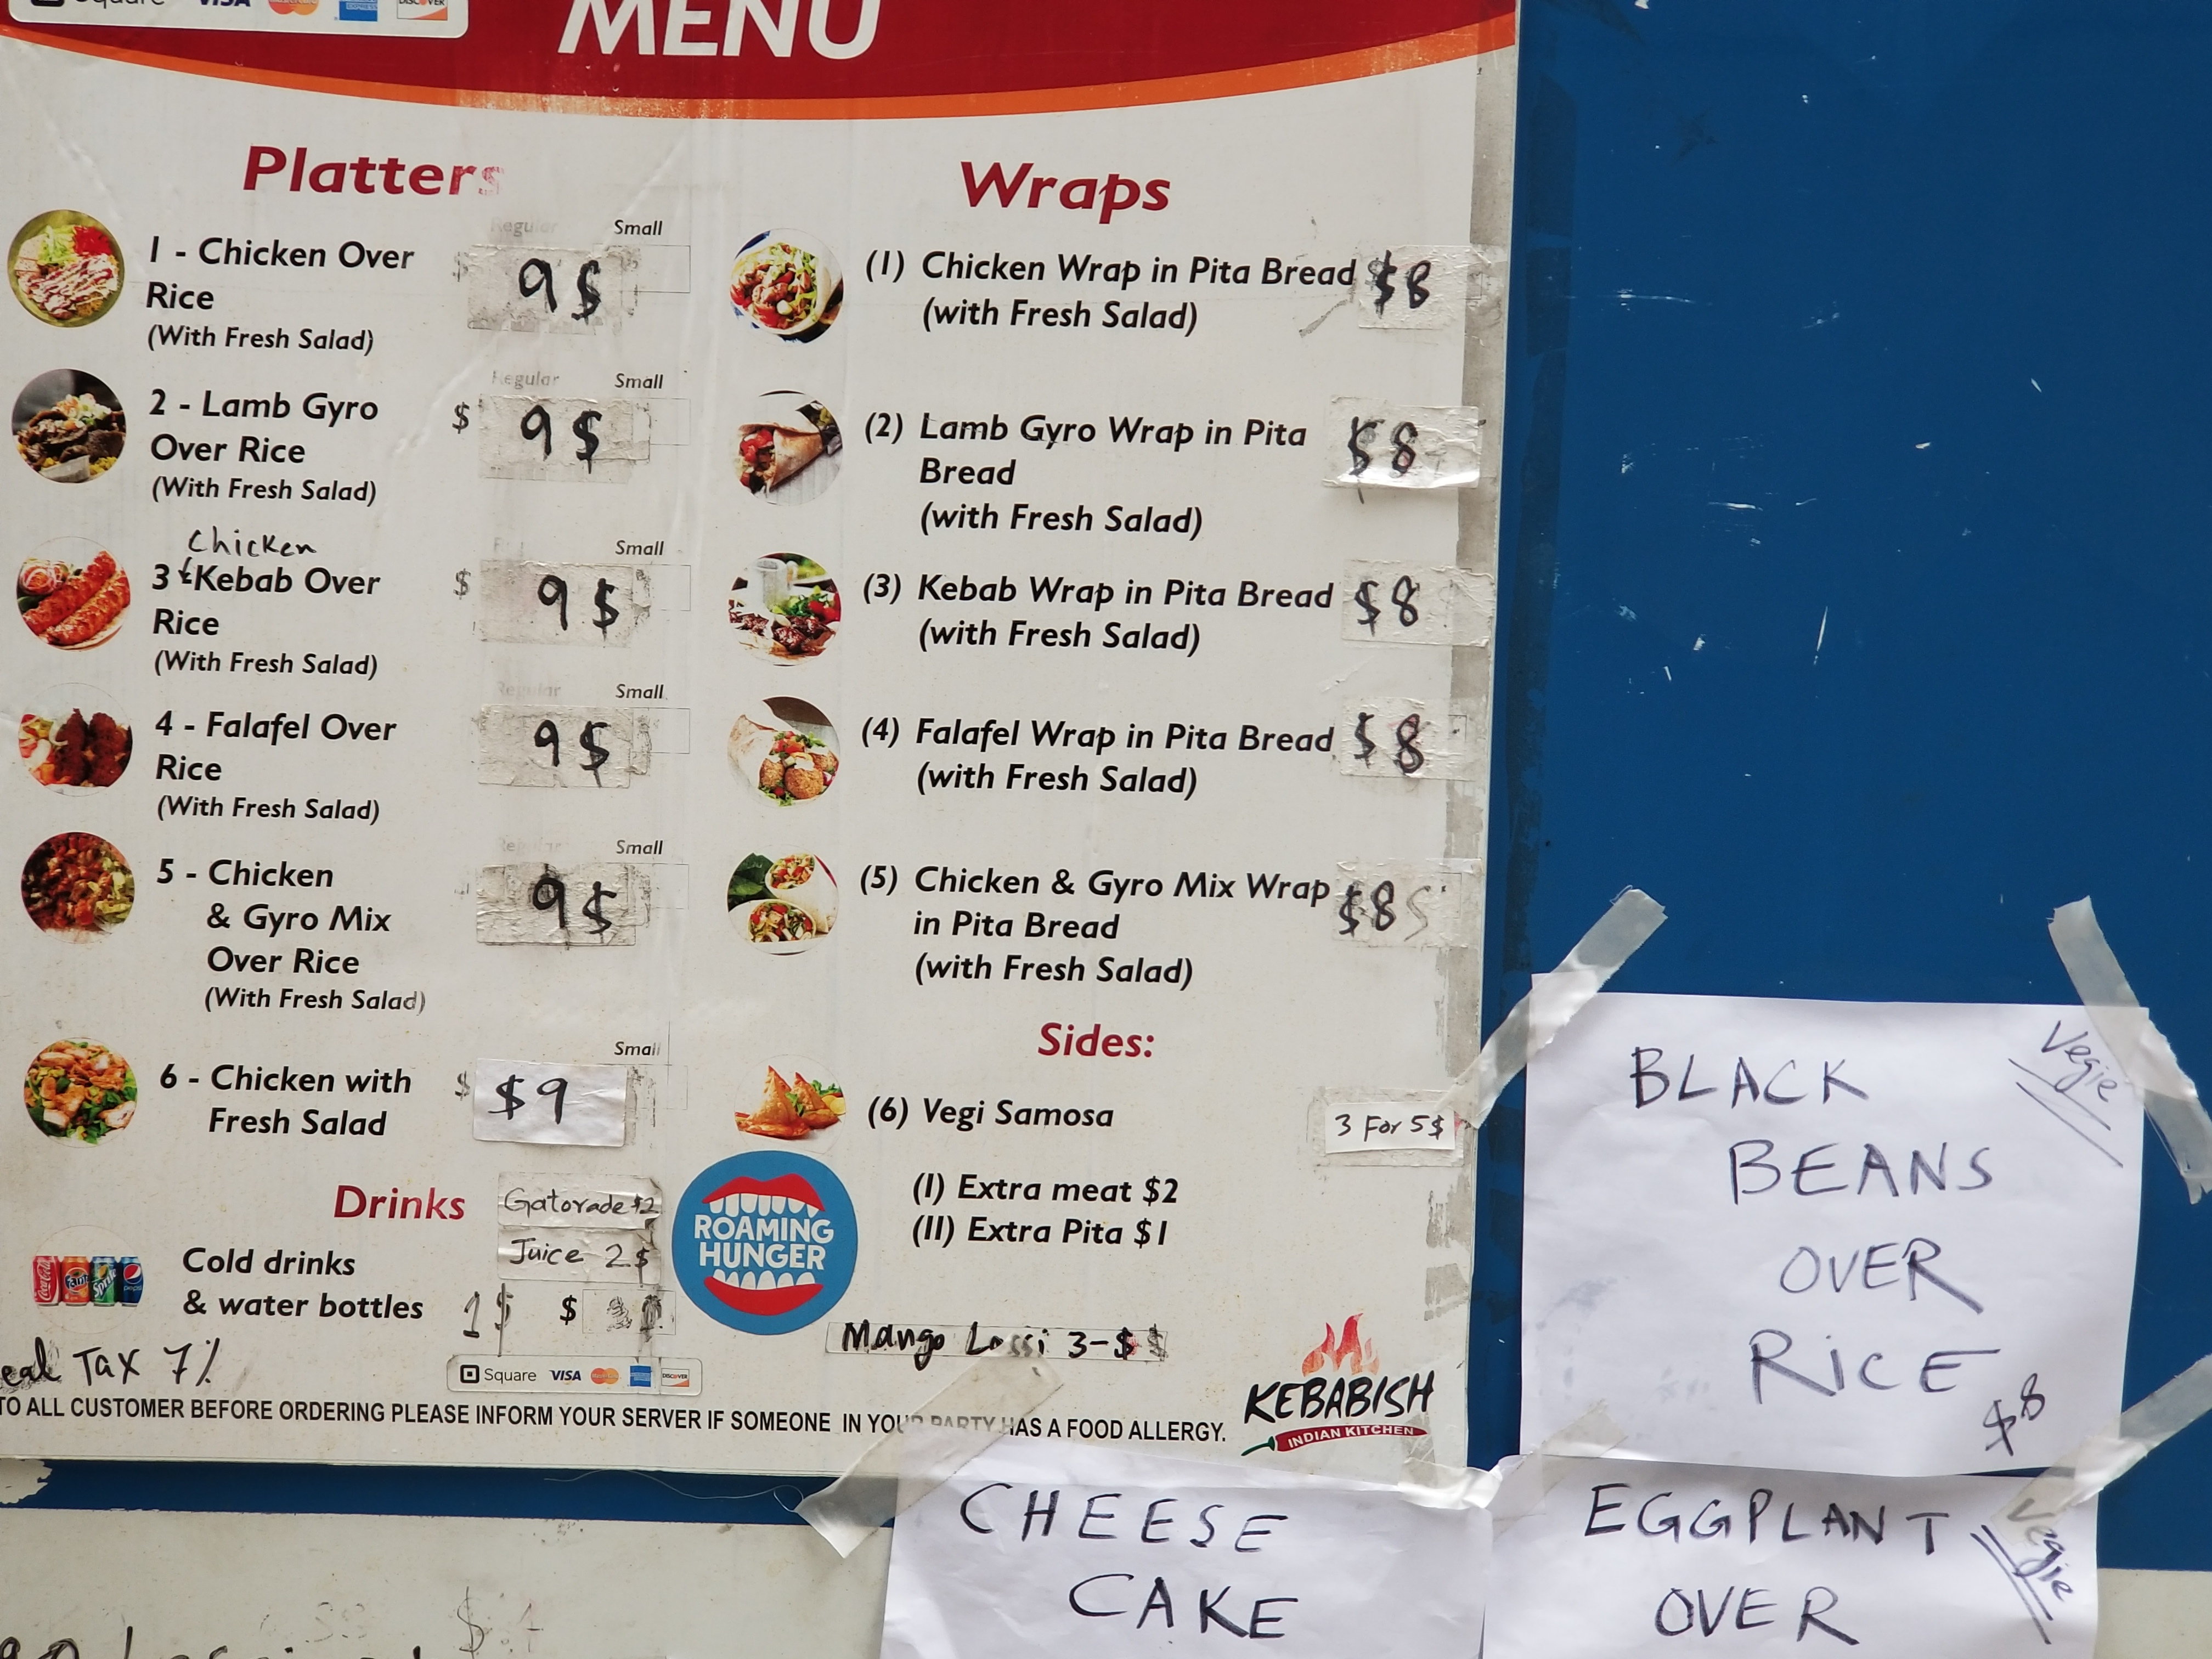 Square VISA MasterCard AMERICAN EXPRESS DISCOVER
MENU
Platters
Regular Small
1 - Chicken Over
Rice
(With Fresh Salad)
$ 9$
Regular Small
2 - Lamb Gyro
Over Rice
(With Fresh Salad)
$ 9$
Chicken
Small
3 - Kebab Over
Rice
(With Fresh Salad)
$ 9$
Regular Small
4 - Falafel Over
Rice
(With Fresh Salad)
9$
Regular Small
5 - Chicken
& Gyro Mix
Over Rice
(With Fresh Salad)
9$
Small
6 - Chicken with
Fresh Salad
$ $9
Drinks
Gatorade $2
Juice 2$
Cold drinks
& water bottles
1$ $
Tax 7%
Square VISA MasterCard DISCOVER
Wraps
(1) Chicken Wrap in Pita Bread $8
(with Fresh Salad)
(2) Lamb Gyro Wrap in Pita $8
Bread
(with Fresh Salad)
(3) Kebab Wrap in Pita Bread $8
(with Fresh Salad)
(4) Falafel Wrap in Pita Bread $8
(with Fresh Salad)
(5) Chicken & Gyro Mix Wrap $8
in Pita Bread
(with Fresh Salad)
Sides:
(6) Vegi Samosa 3 For 5$
(I) Extra meat $2
(II) Extra Pita $1
ROAMING
HUNGER
Mango Lassi 3-$
TO ALL CUSTOMER BEFORE ORDERING PLEASE INFORM YOUR SERVER IF SOMEONE IN YOUR PARTY HAS A FOOD ALLERGY.
KEBABISH
INDIAN KITCHEN
Vegie
BLACK
BEANS
OVER
RiCE
$8
CHEESE
CAKE
EGGPLANT
Vegie
OVER